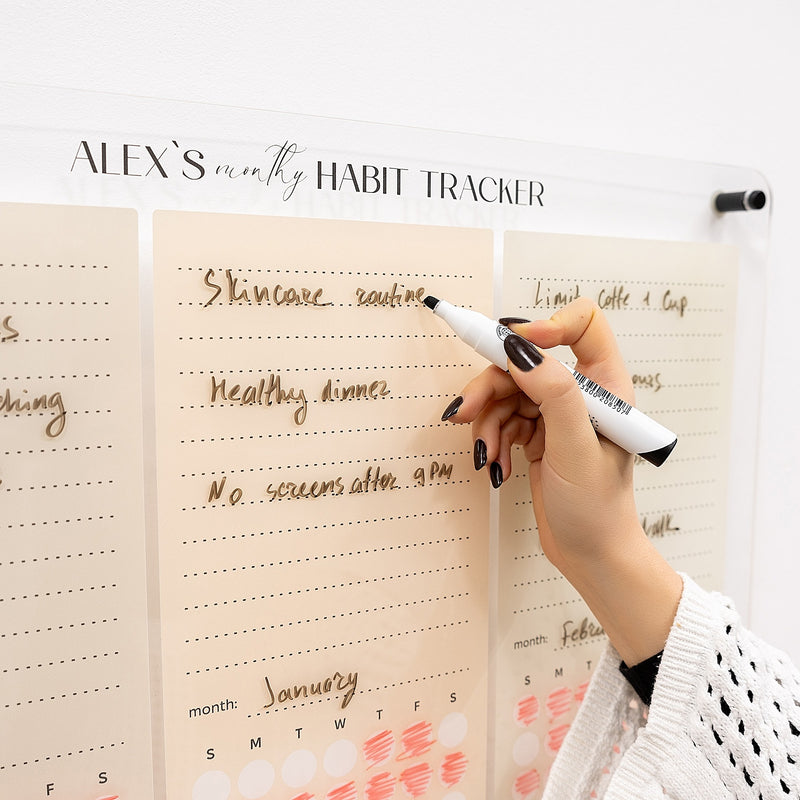 ALEX`S monthly HABIT TRACKER
Skincare routine
Healthy dinner
No screens after 9PM
month: January
S M T W T F S
Limit Coffe 1 Cup
month:
S M T
F S